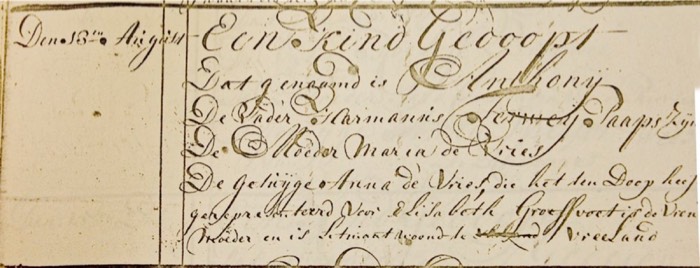 Den 13en August
Een kind Gedoopt
Dat genaamd is Anthony
De Vader Harmannis Terweij Paaps Zijn
De Moeder Maria de Vries
De Getuijge Anna de Vries die het ten Doop heef
gerepresenteerd voor Elisabeth Groffvoet is de Vrou
Moeder en is woond te Vreeland